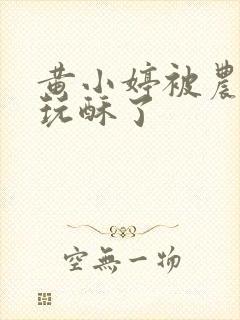 黄小婷被農
玩酥了
空無一物